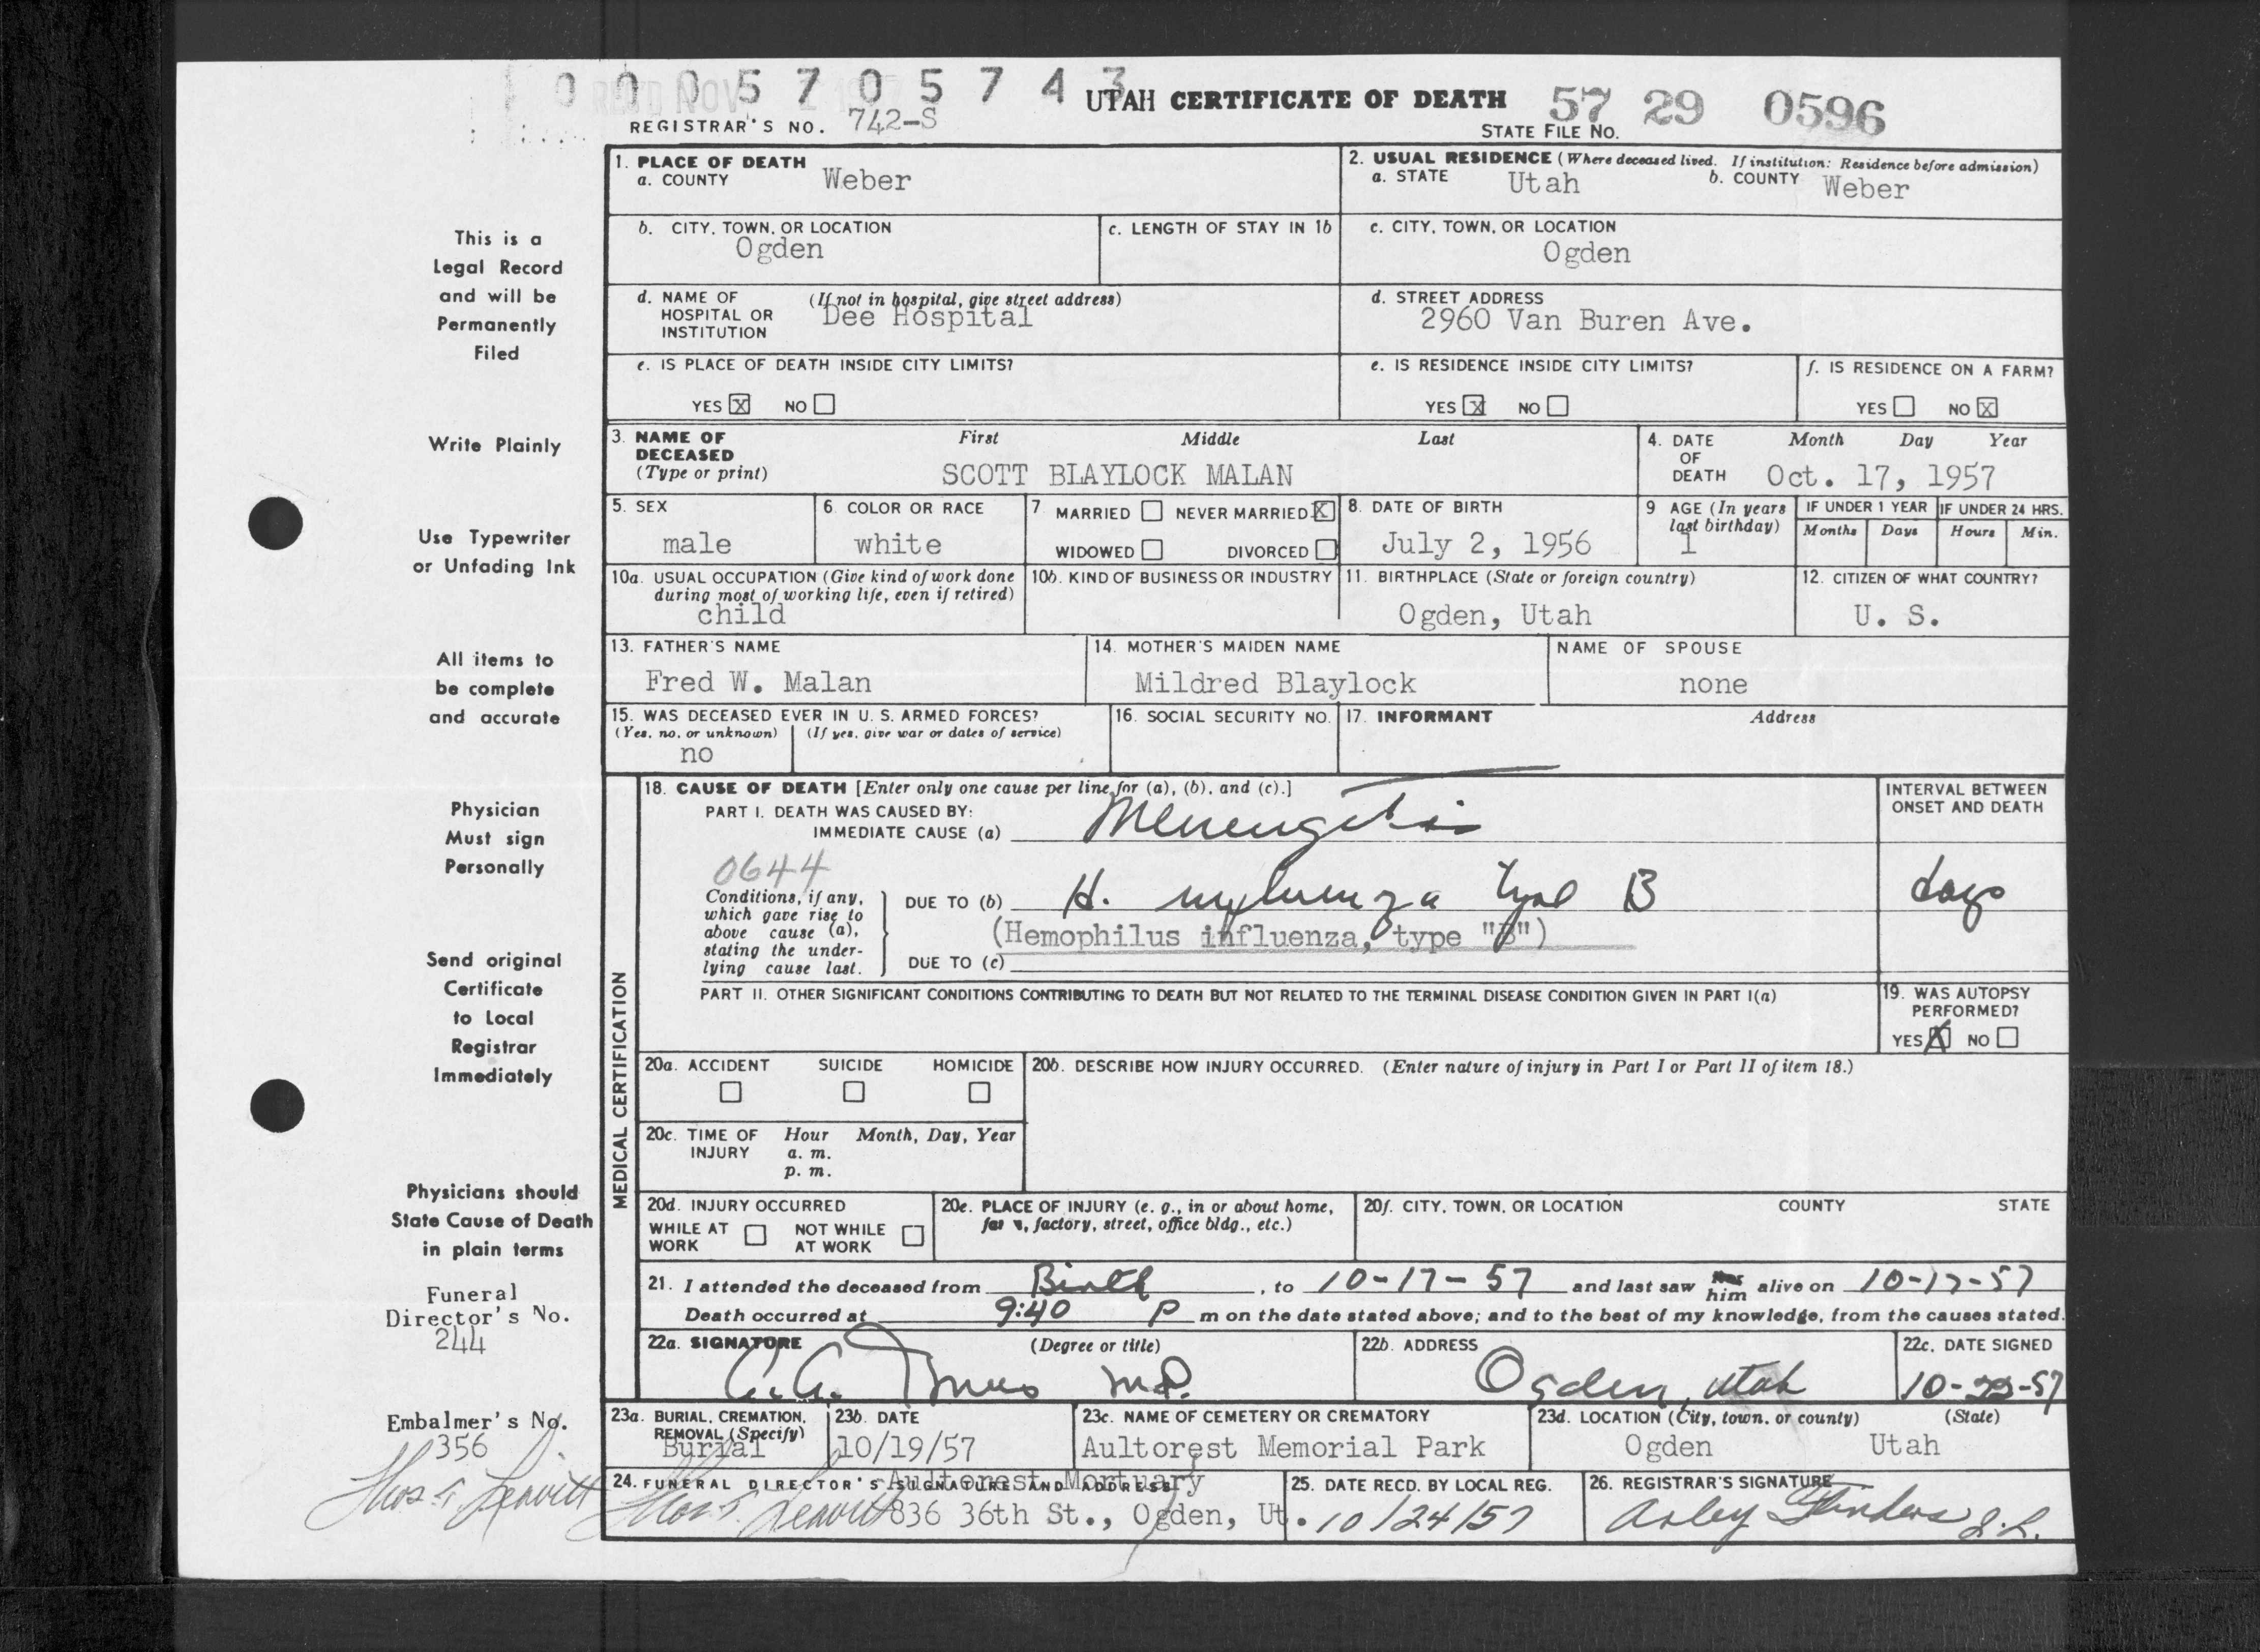 0 0 0 5 7 0 5 7 4 3
REC'D NOV
UTAH CERTIFICATE OF DEATH 57 29 0596
REGISTRAR'S NO. 742-S STATE FILE NO.
1. PLACE OF DEATH
a. COUNTY Weber
2. USUAL RESIDENCE (Where deceased lived. If institution: Residence before admission)
a. STATE Utah b. COUNTY Weber
b. CITY, TOWN, OR LOCATION
Ogden
c. LENGTH OF STAY IN 1b
c. CITY, TOWN, OR LOCATION
Ogden
d. NAME OF HOSPITAL OR INSTITUTION (If not in hospital, give street address)
Dee Hospital
d. STREET ADDRESS
2960 Van Buren Ave.
e. IS PLACE OF DEATH INSIDE CITY LIMITS?
YES X NO
e. IS RESIDENCE INSIDE CITY LIMITS?
YES X NO
f. IS RESIDENCE ON A FARM?
YES NO X
3. NAME OF DECEASED (Type or print) First Middle Last
SCOTT BLAYLOCK MALAN
4. DATE OF DEATH Month Day Year
Oct. 17, 1957
5. SEX
male
6. COLOR OR RACE
white
7. MARRIED NEVER MARRIED X
WIDOWED DIVORCED
8. DATE OF BIRTH
July 2, 1956
9 AGE (In years last birthday)
1
IF UNDER 1 YEAR
Months Days
IF UNDER 24 HRS.
Hours Min.
10a. USUAL OCCUPATION (Give kind of work done during most of working life, even if retired)
child
10b. KIND OF BUSINESS OR INDUSTRY
11. BIRTHPLACE (State or foreign country)
Ogden, Utah
12. CITIZEN OF WHAT COUNTRY?
U. S.
13. FATHER'S NAME
Fred W. Malan
14. MOTHER'S MAIDEN NAME
Mildred Blaylock
NAME OF SPOUSE
none
15. WAS DECEASED EVER IN U. S. ARMED FORCES?
(Yes, no, or unknown) (If yes, give war or dates of service)
no
16. SOCIAL SECURITY NO.
17. INFORMANT Address
MEDICAL CERTIFICATION
18. CAUSE OF DEATH [Enter only one cause per line for (a), (b), and (c).]
PART I. DEATH WAS CAUSED BY:
IMMEDIATE CAUSE (a) Menengitis
INTERVAL BETWEEN ONSET AND DEATH
0644
Conditions, if any, which gave rise to above cause (a), stating the underlying cause last.
DUE TO (b) H. influenza type B
days
(Hemophilus influenza, type "B")
DUE TO (c)
PART II. OTHER SIGNIFICANT CONDITIONS CONTRIBUTING TO DEATH BUT NOT RELATED TO THE TERMINAL DISEASE CONDITION GIVEN IN PART I(a)
19. WAS AUTOPSY PERFORMED?
YES X NO
20a. ACCIDENT SUICIDE HOMICIDE
20b. DESCRIBE HOW INJURY OCCURRED. (Enter nature of injury in Part I or Part II of item 18.)
20c. TIME OF INJURY Hour Month, Day, Year
a. m.
p. m.
20d. INJURY OCCURRED
WHILE AT WORK NOT WHILE AT WORK
20e. PLACE OF INJURY (e. g., in or about home, farm, factory, street, office bldg., etc.)
20f. CITY, TOWN, OR LOCATION COUNTY STATE
21. I attended the deceased from Birth, to 10-17-57 and last saw him alive on 10-17-57
Death occurred at 9:40 P m on the date stated above; and to the best of my knowledge, from the causes stated.
22a. SIGNATURE (Degree or title)
M.D.
22b. ADDRESS
Ogden, Utah
22c. DATE SIGNED
10-22-57
23a. BURIAL, CREMATION, REMOVAL (Specify)
Burial
23b. DATE
10/19/57
23c. NAME OF CEMETERY OR CREMATORY
Aultorest Memorial Park
23d. LOCATION (City, town, or county) (State)
Ogden Utah
24. FUNERAL DIRECTOR'S SIGNATURE AND ADDRESS
Aultorest Mortuary
Thos. T. Leavitt 836 36th St., Ogden, Ut.
25. DATE RECD. BY LOCAL REG.
10/24/57
26. REGISTRAR'S SIGNATURE
Arley Flinders
This is a
Legal Record
and will be
Permanently
Filed
Write Plainly
Use Typewriter
or Unfading Ink
All items to
be complete
and accurate
Physician
Must sign
Personally
Send original
Certificate
to Local
Registrar
Immediately
Physicians should
State Cause of Death
in plain terms
Funeral
Director's No.
244
Embalmer's No.
356
Thos. T. Leavitt